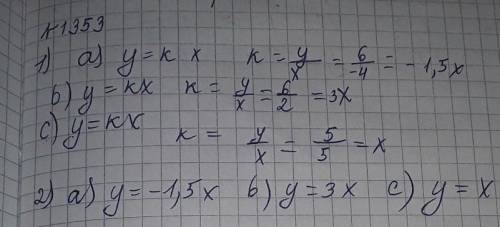 №1353
1) а) y = k x   k = y/x = 6/-4 = - 1,5x
b) y = kx   k = y/x = 6/2 = 3x
c) y = kx   k = y/x = 5/5 = x
2) а) y = -1,5x   b) y = 3x   c) y = x